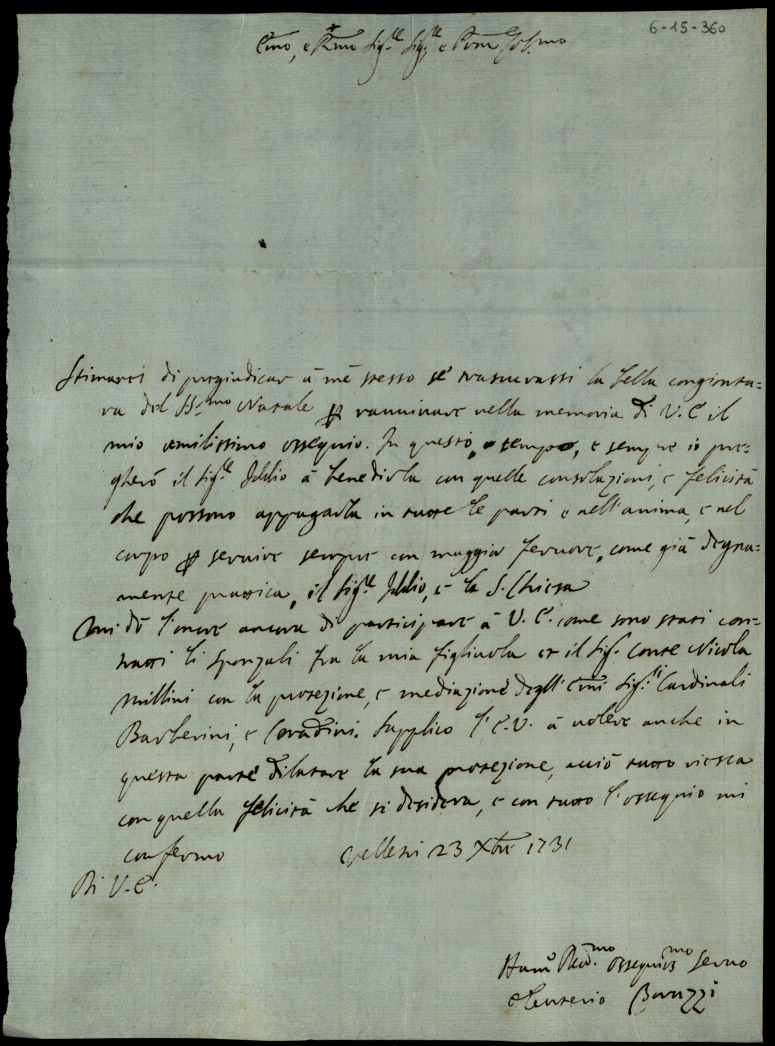 6-15-360
Em̃o, e R̃mo Sig.re Sig.re e Pr̃on Col.mo
Stimarei di pregiudicar à mè stesso sè trascurassi la bella congiontu=
ra del SS.mo Natale per ravvivare nella memoria di V. E. il
mio umilissimo ossequio. In questo, tempo, e sempre io pre=
gherò il Sig.re Iddio à benedirla con quelle consolazioni, e felicità
che possono appagarla in tutte le parti e nell'anima, e nel
corpo per servire sempre con maggior fervore, come già degna=
mente prattica, il Sig.re Iddio, e la S. Chiesa
Mi dò l'onore ancora di participare à V. E. come sono stati con=
tratti li Sponzali fra la mia figliuola et il Sig. Conte Nicola
Millini con la protezione, e mediazione degl' Em̃i Sig.ri Cardinali
Barberini, e Coradini. Supplico l'E. V. à volere anche in
questa parte dilatare la sua protezione, acciò tutto riesca
con quella felicità che si desidera, e con tutto l'ossequio mi
confermo Velletri 23 Xbre 1731
Di V. E.
Hum.o Dev.mo Osseqüis.mo Servo
Borozzi